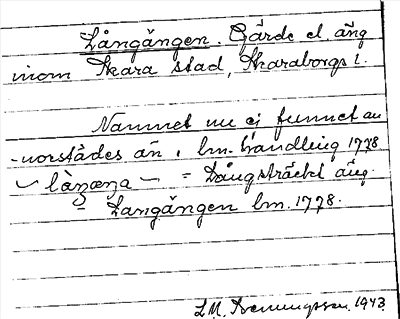 Långängen. Gärde el. äng
inom Skara stad, Skaraborgs l.
Namnet nu ej funnet an-
norstädes än i lm. handling 1778.
= Långsträckt äng
= Långängen lm. 1778.
L.M. 1943.